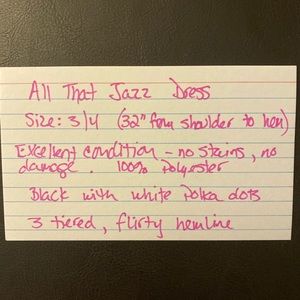 All That Jazz Dress
Size: 3/4 (32" from shoulder to hem)
Excellent condition - no stains, no
damage. 100% Polyester
Black with white Polka dots
3 tiered, flirty hemline